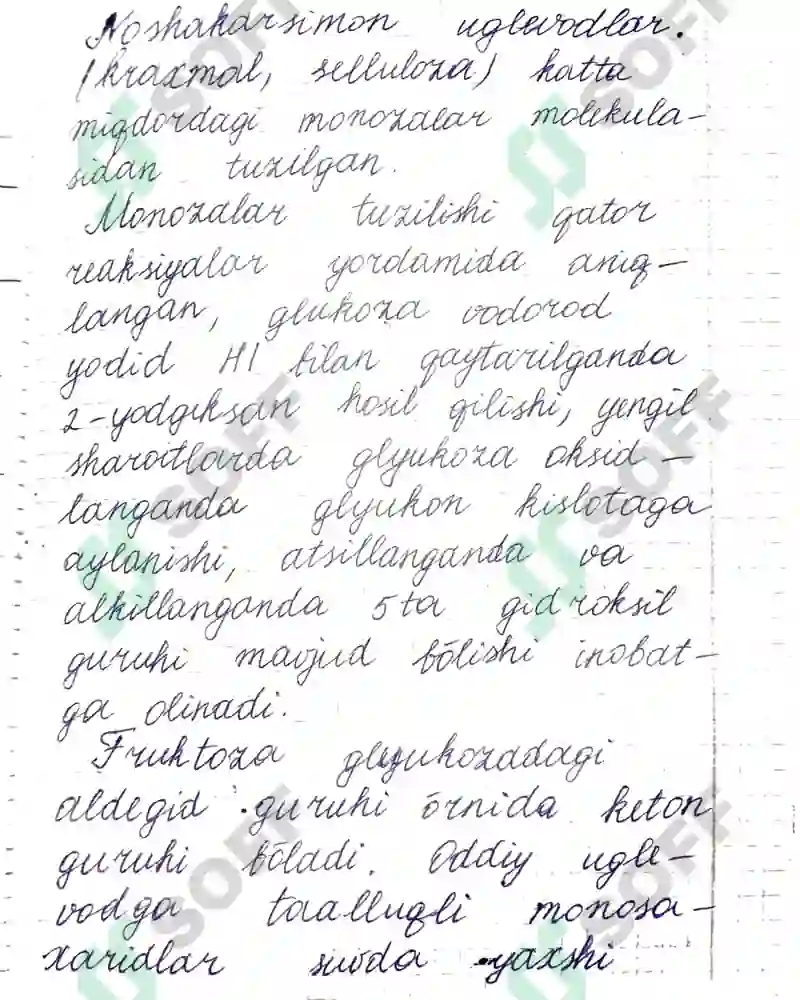 Noshakarsimon uglevodlar.
(kraxmal, selluloza) katta
miqdordagi monozalar molekula-
sidan tuzilgan.
Monozalar tuzilishi qator
reaksiyalar yordamida aniq-
langan, glukoza vodorod
yodid HI bilan qaytarilganda
2-yodgeksan hosil qilishi, yengil
sharoitlarda glyukoza oksid-
langanda glyukon kislotaga
aylanishi, atsillanganda va
alkillanganda 5 ta gidroksil
guruhi mavjud bōlishi inobat-
ga olinadi.
Fruktoza glyukozadagi
aldegid guruhi ōrnida keton
guruhi bōladi. Oddiy ugle-
vodga taalluqli monosa-
xaridlar suvda yaxshi
SOFF
SOFF
SOFF
SOFF
SOFF
SOFF